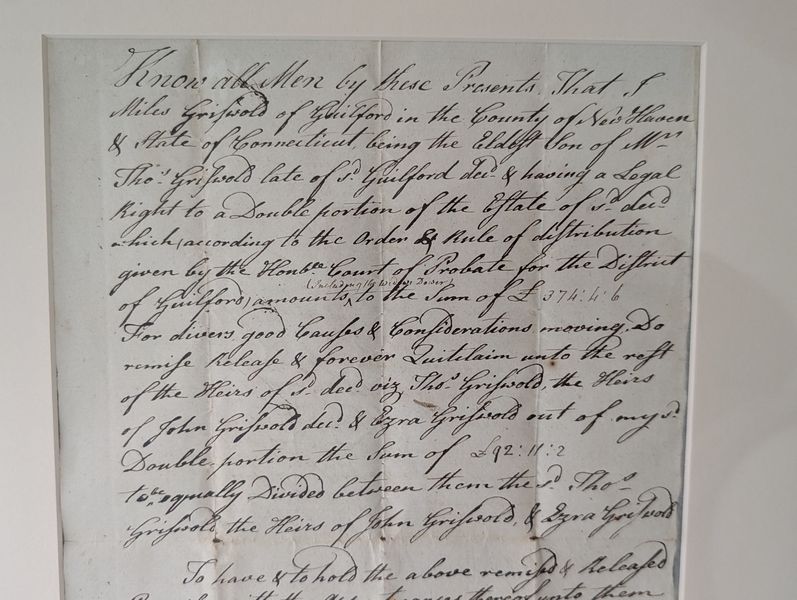 Know all Men by these Presents, That I
Miles Griswold of Guilford in the County of New Haven
& State of Connecticut, being the Eldest Son of Mr.
Thos. Griswold late of sd. Guilford decd. & having a Legal
Right to a Double portion of the Estate of sd. decd.
which (according to the Order & Rule of distribution
given by the Honble. Court of Probate for the District
(Including the Widows Dower)
of Guilford) amounts ‸ to the Sum of £ 374:4:6
For divers good Causes & Considerations moving, Do
remise Release & forever Quitclaim unto the rest
of the Heirs of sd. decd. viz Thos. Griswold, the Heirs
of John Griswold decd. & Ezra Griswold out of my sd.
Double portion the Sum of £92:11:2
to be equally Divided between them the sd. Thos.
Griswold, the Heirs of John Griswold, & Ezra Griswold
To have & to hold the above remised & Released
thereof unto them